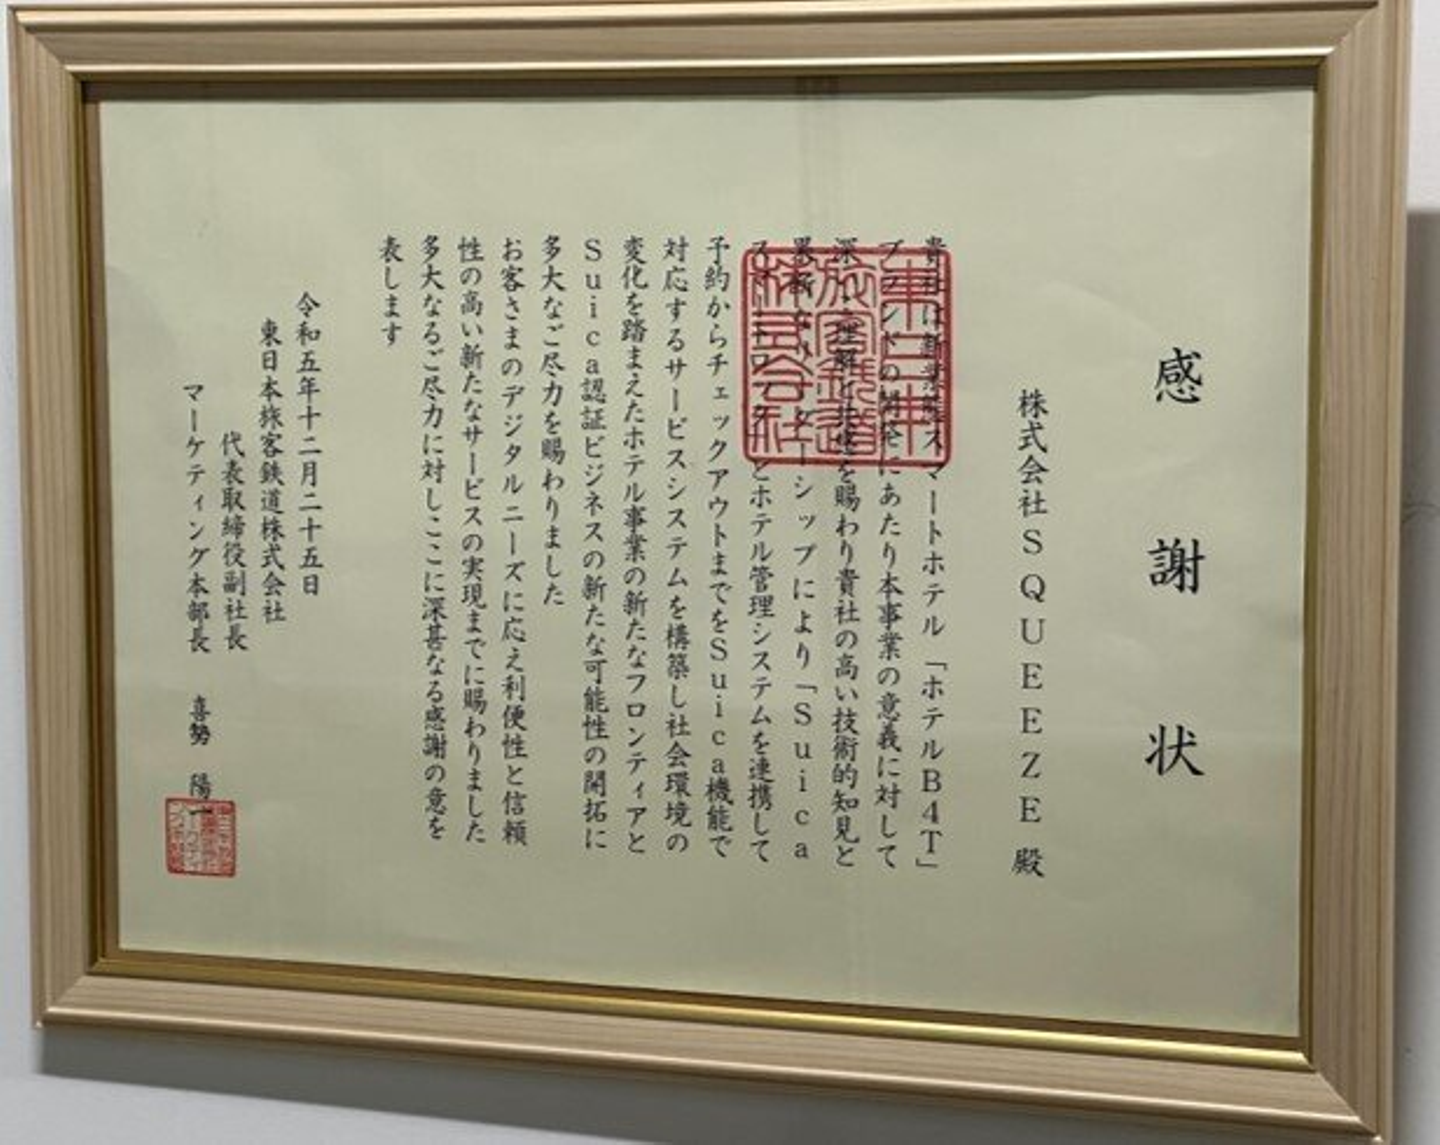 感謝状
株式会社SQUEEZE 殿
貴社は新業態スマートホテル「ホテルB4T」
ブランドの開発にあたり本事業の意義に対して
深いご理解と共感を賜わり貴社の高い技術的知見と
リーダーシップにより「Suica
スマートロック」とホテル管理システムを連携して
予約からチェックアウトまでをSuica機能で
対応するサービスシステムを構築し社会環境の
変化を踏まえたホテル事業の新たなフロンティアと
Suica認証ビジネスの新たな可能性の開拓に
多大なご尽力を賜わりました
お客さまのデジタルニーズに応え利便性と信頼
性の高い新たなサービスの実現までに賜わりました
多大なるご尽力に対しここに深甚なる感謝の意を
表します
令和五年十二月二十五日
東日本旅客鉄道株式会社
代表取締役副社長
マーケティング本部長 喜勢 陽一
東日本旅客鉄道株式会社